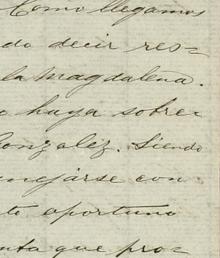 Como llegamos
do decir res-
la Magdalena.
o haya sobre
Gonzalez. Siendo
anejarse con
to oportuno
nta que pro-